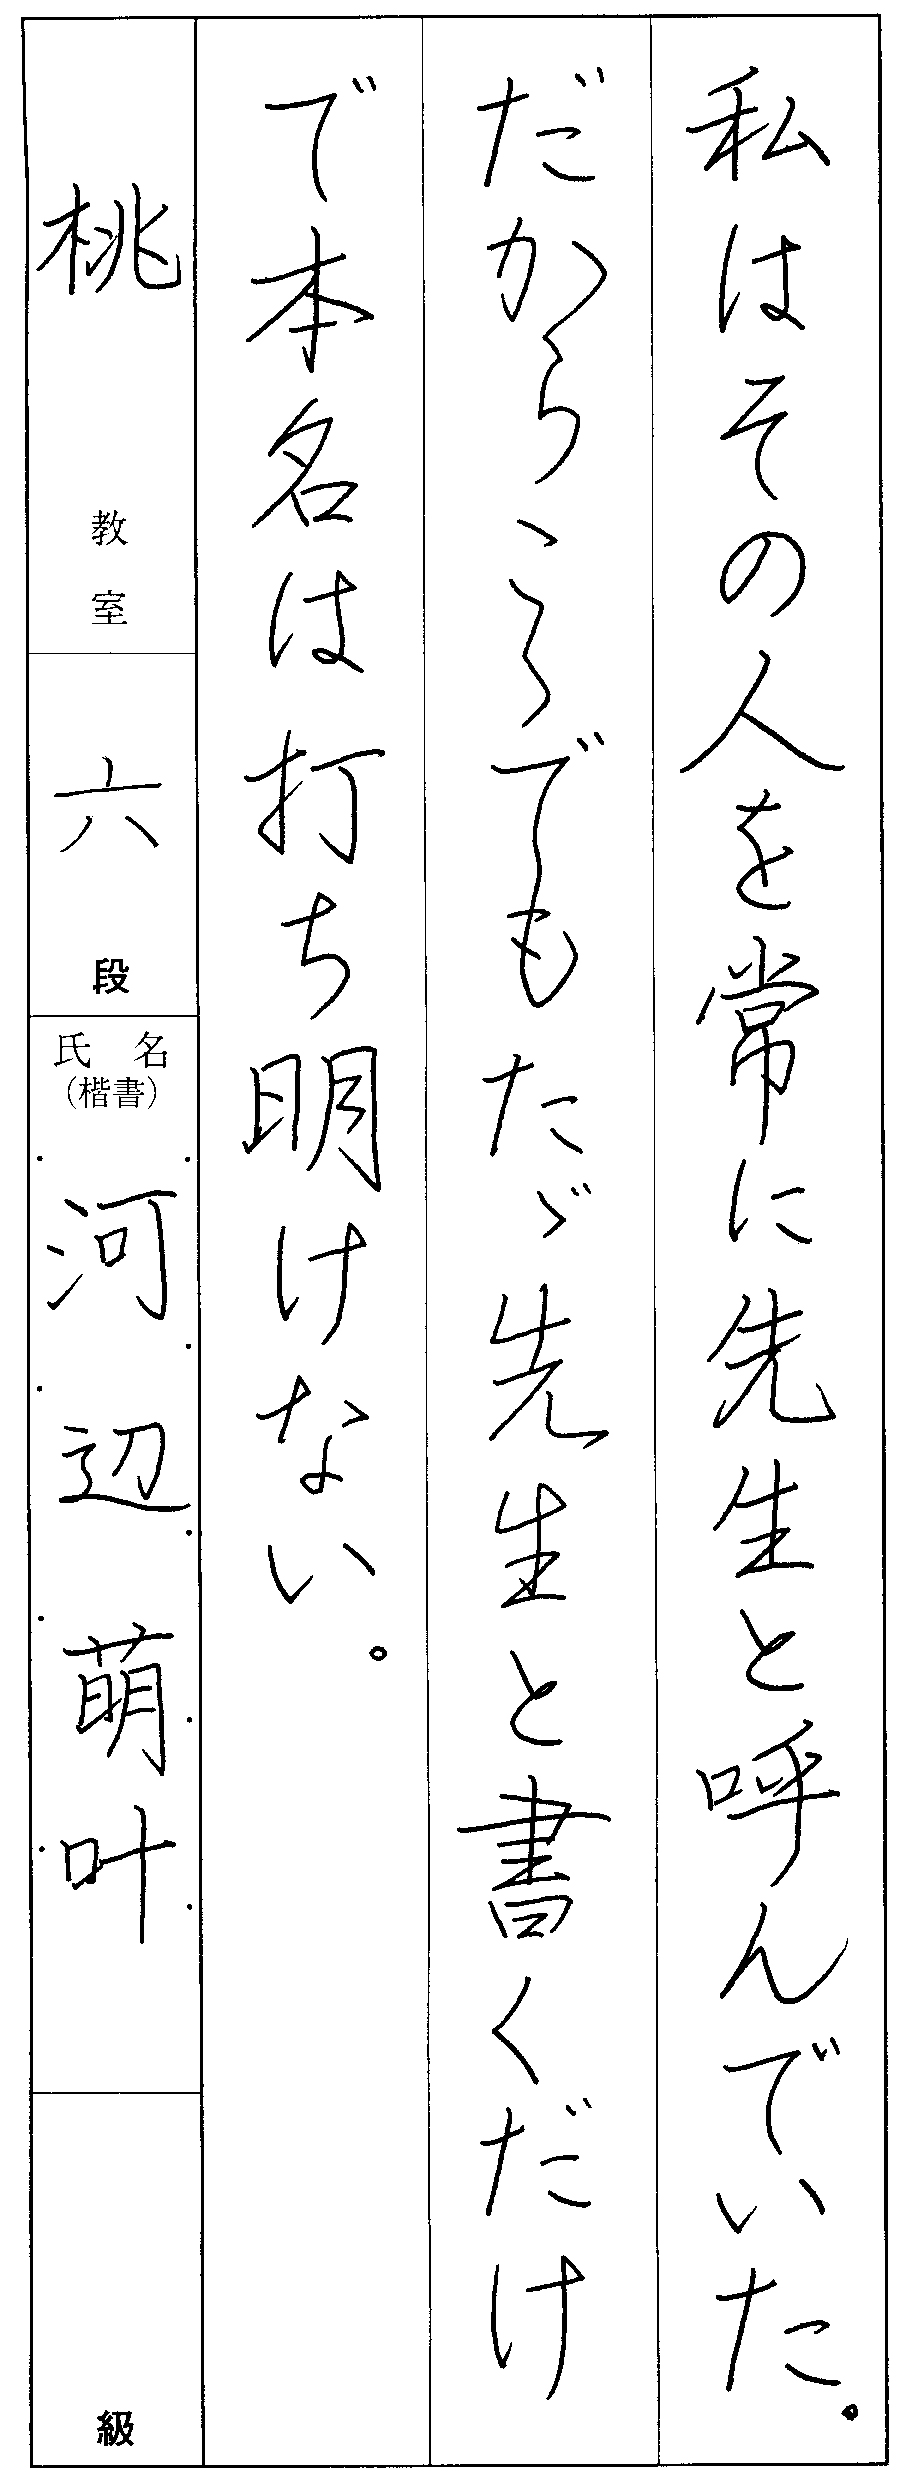 私はその人を常に先生と呼んでいた。
だからこゝでもたゞ先生と書くだけ
で本名は打ち明けない。
桃 教室
六 段
氏名
(楷書)
河辺萌叶
級